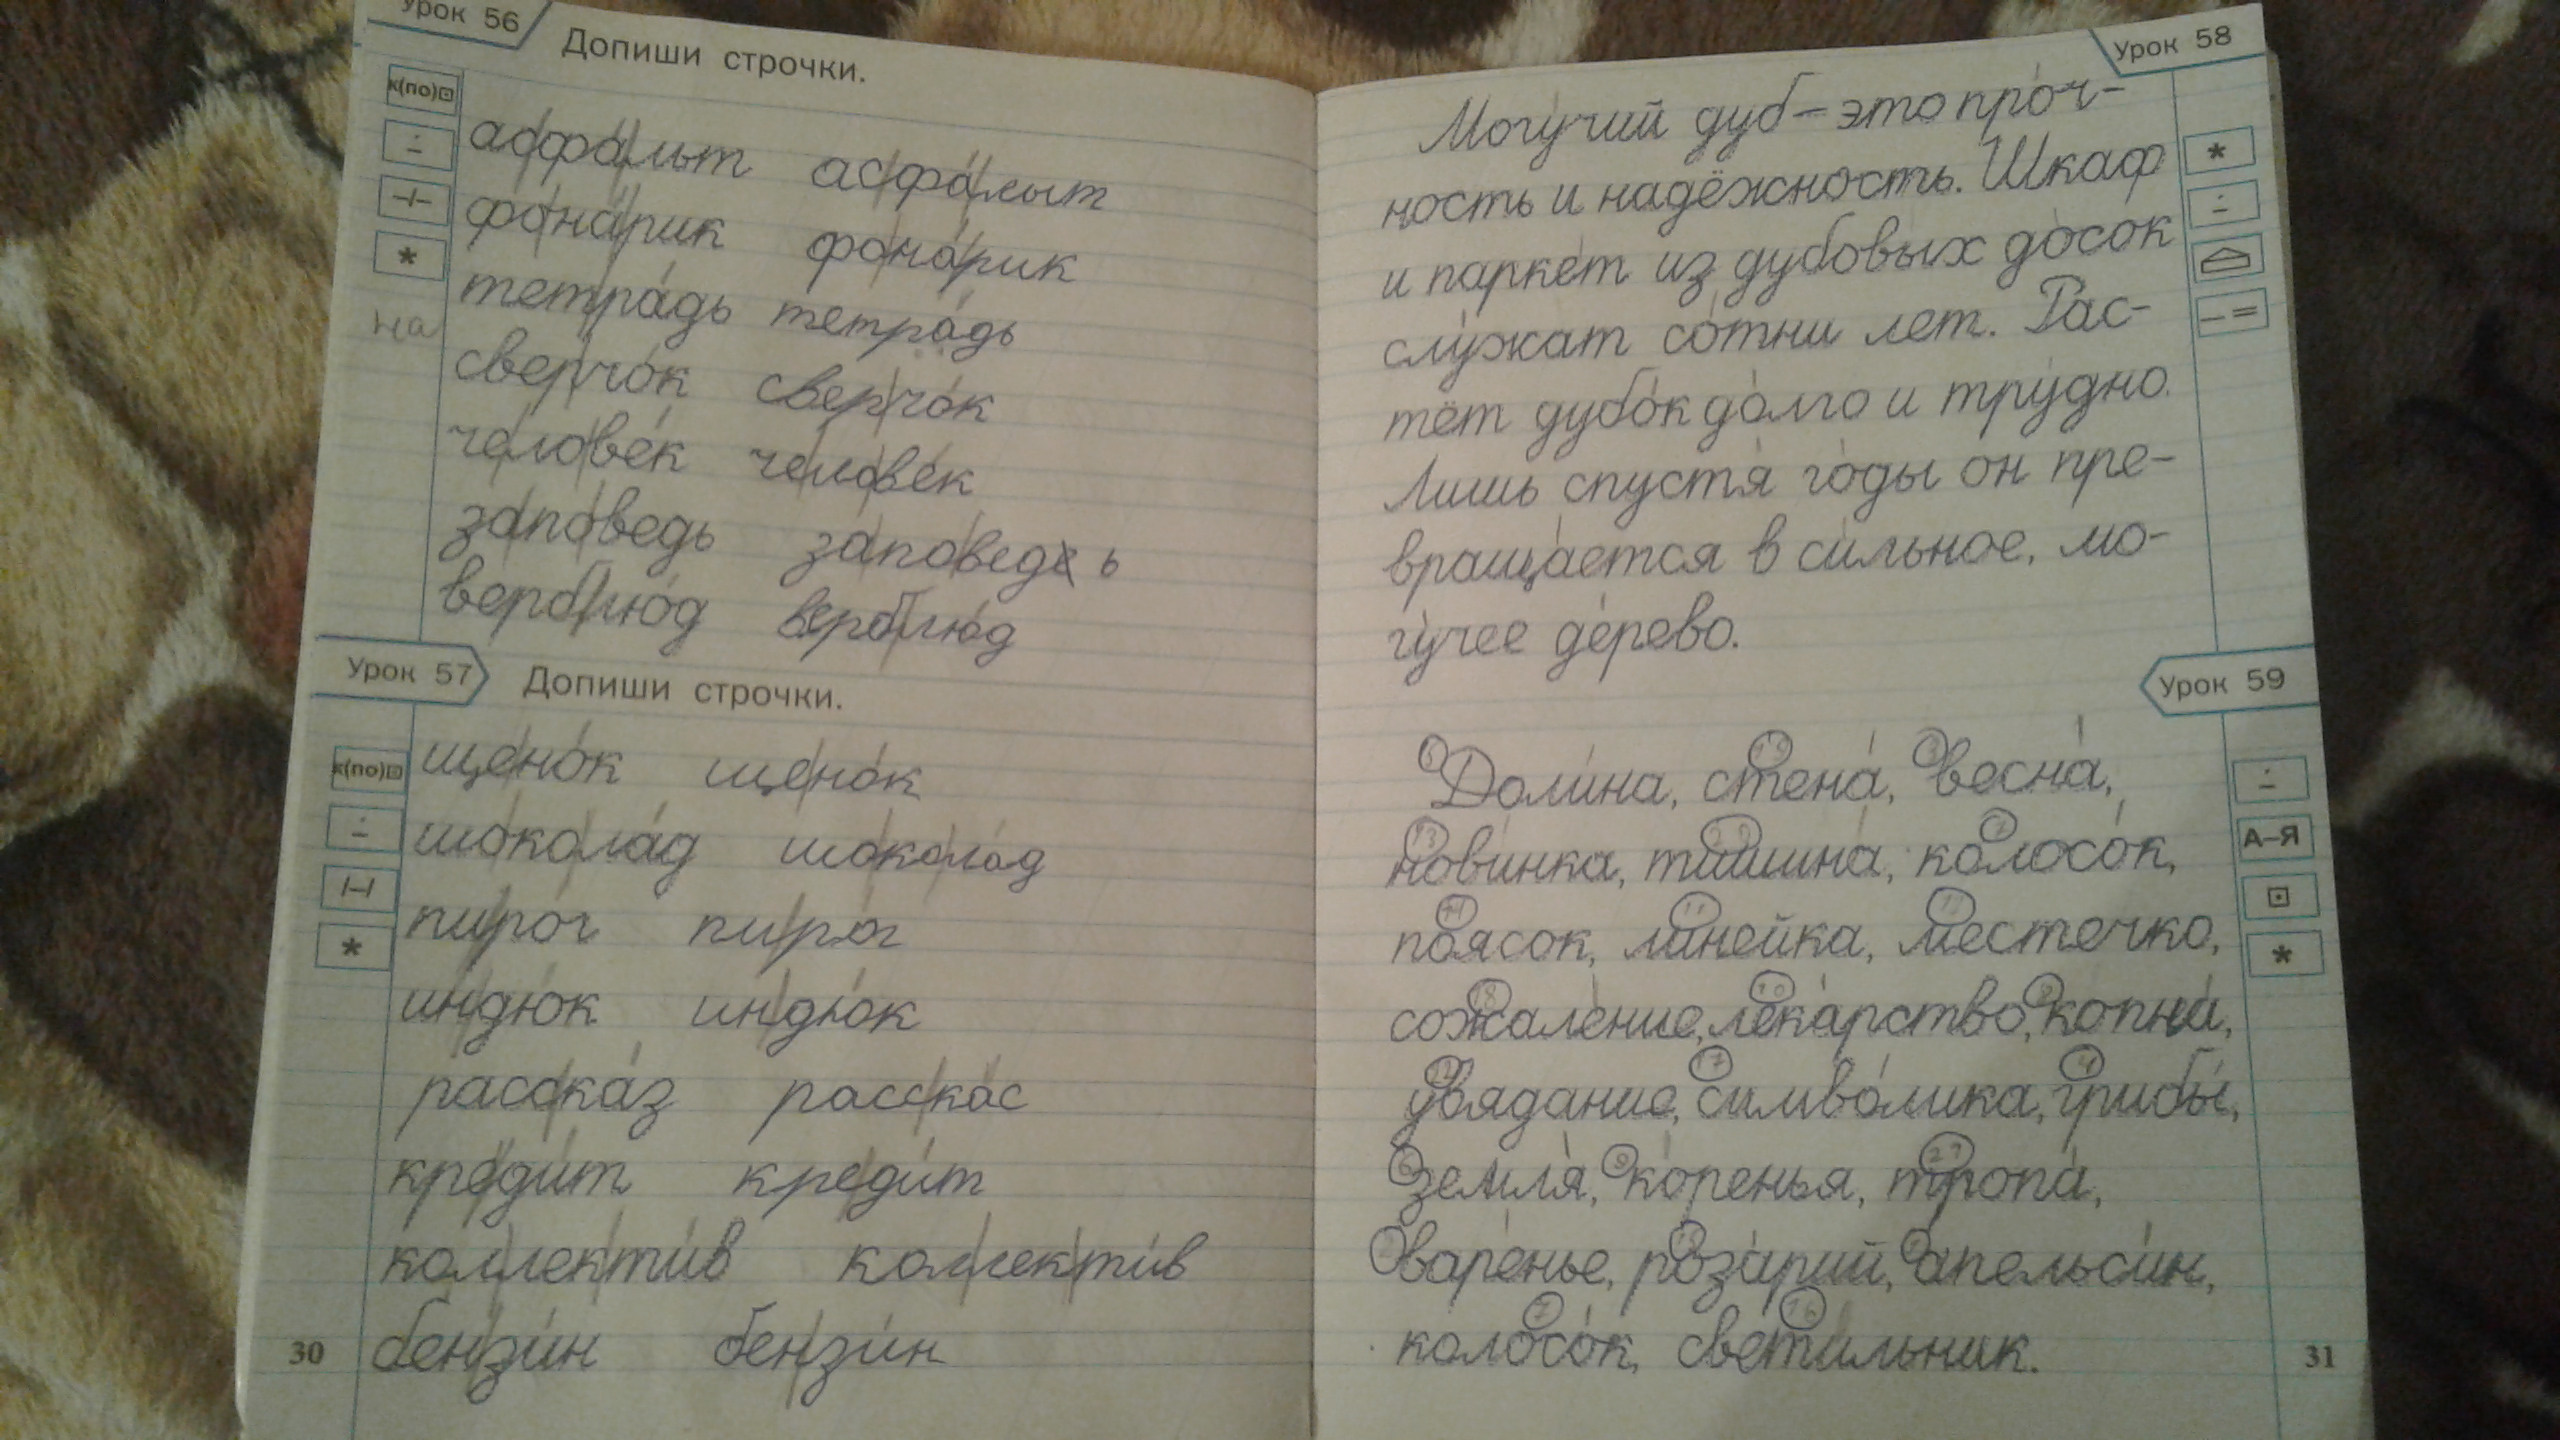 Урок 56
Допиши строчки.
к(по)⊡
асфальт асфальыт
фонарик фонарик
*
тетрадь тетрадь
на
сверчок сверчок
человек человек
заповедь заповедь
верблюд верблюд
Урок 57 Допиши строчки.
к(по)⊡
щенок щенок
шоколад шоколад
пирог пирог
*
индюк индюк
рассказ расскас
кредит кредит
коллектив коллектив
бензин бензин
30
Урок 58
Могучий дуб – это проч-
*
ность и надёжность. Шкаф
и паркет из дубовых досок
служат сотни лет. Рас-
тёт дубок долго и трудно.
Лишь спустя годы он пре-
вращается в сильное, мо-
гучее дерево.
Урок 59
Долина, стена, весна,
А–Я
новинка, тишина, колосок,
поясок, линейка, местечко,
*
сожаление, лекарство, копна,
увядание, символика, грибы,
земля, коренья, тропа,
варенье, розарий, апельсин,
колосок, светильник.
31